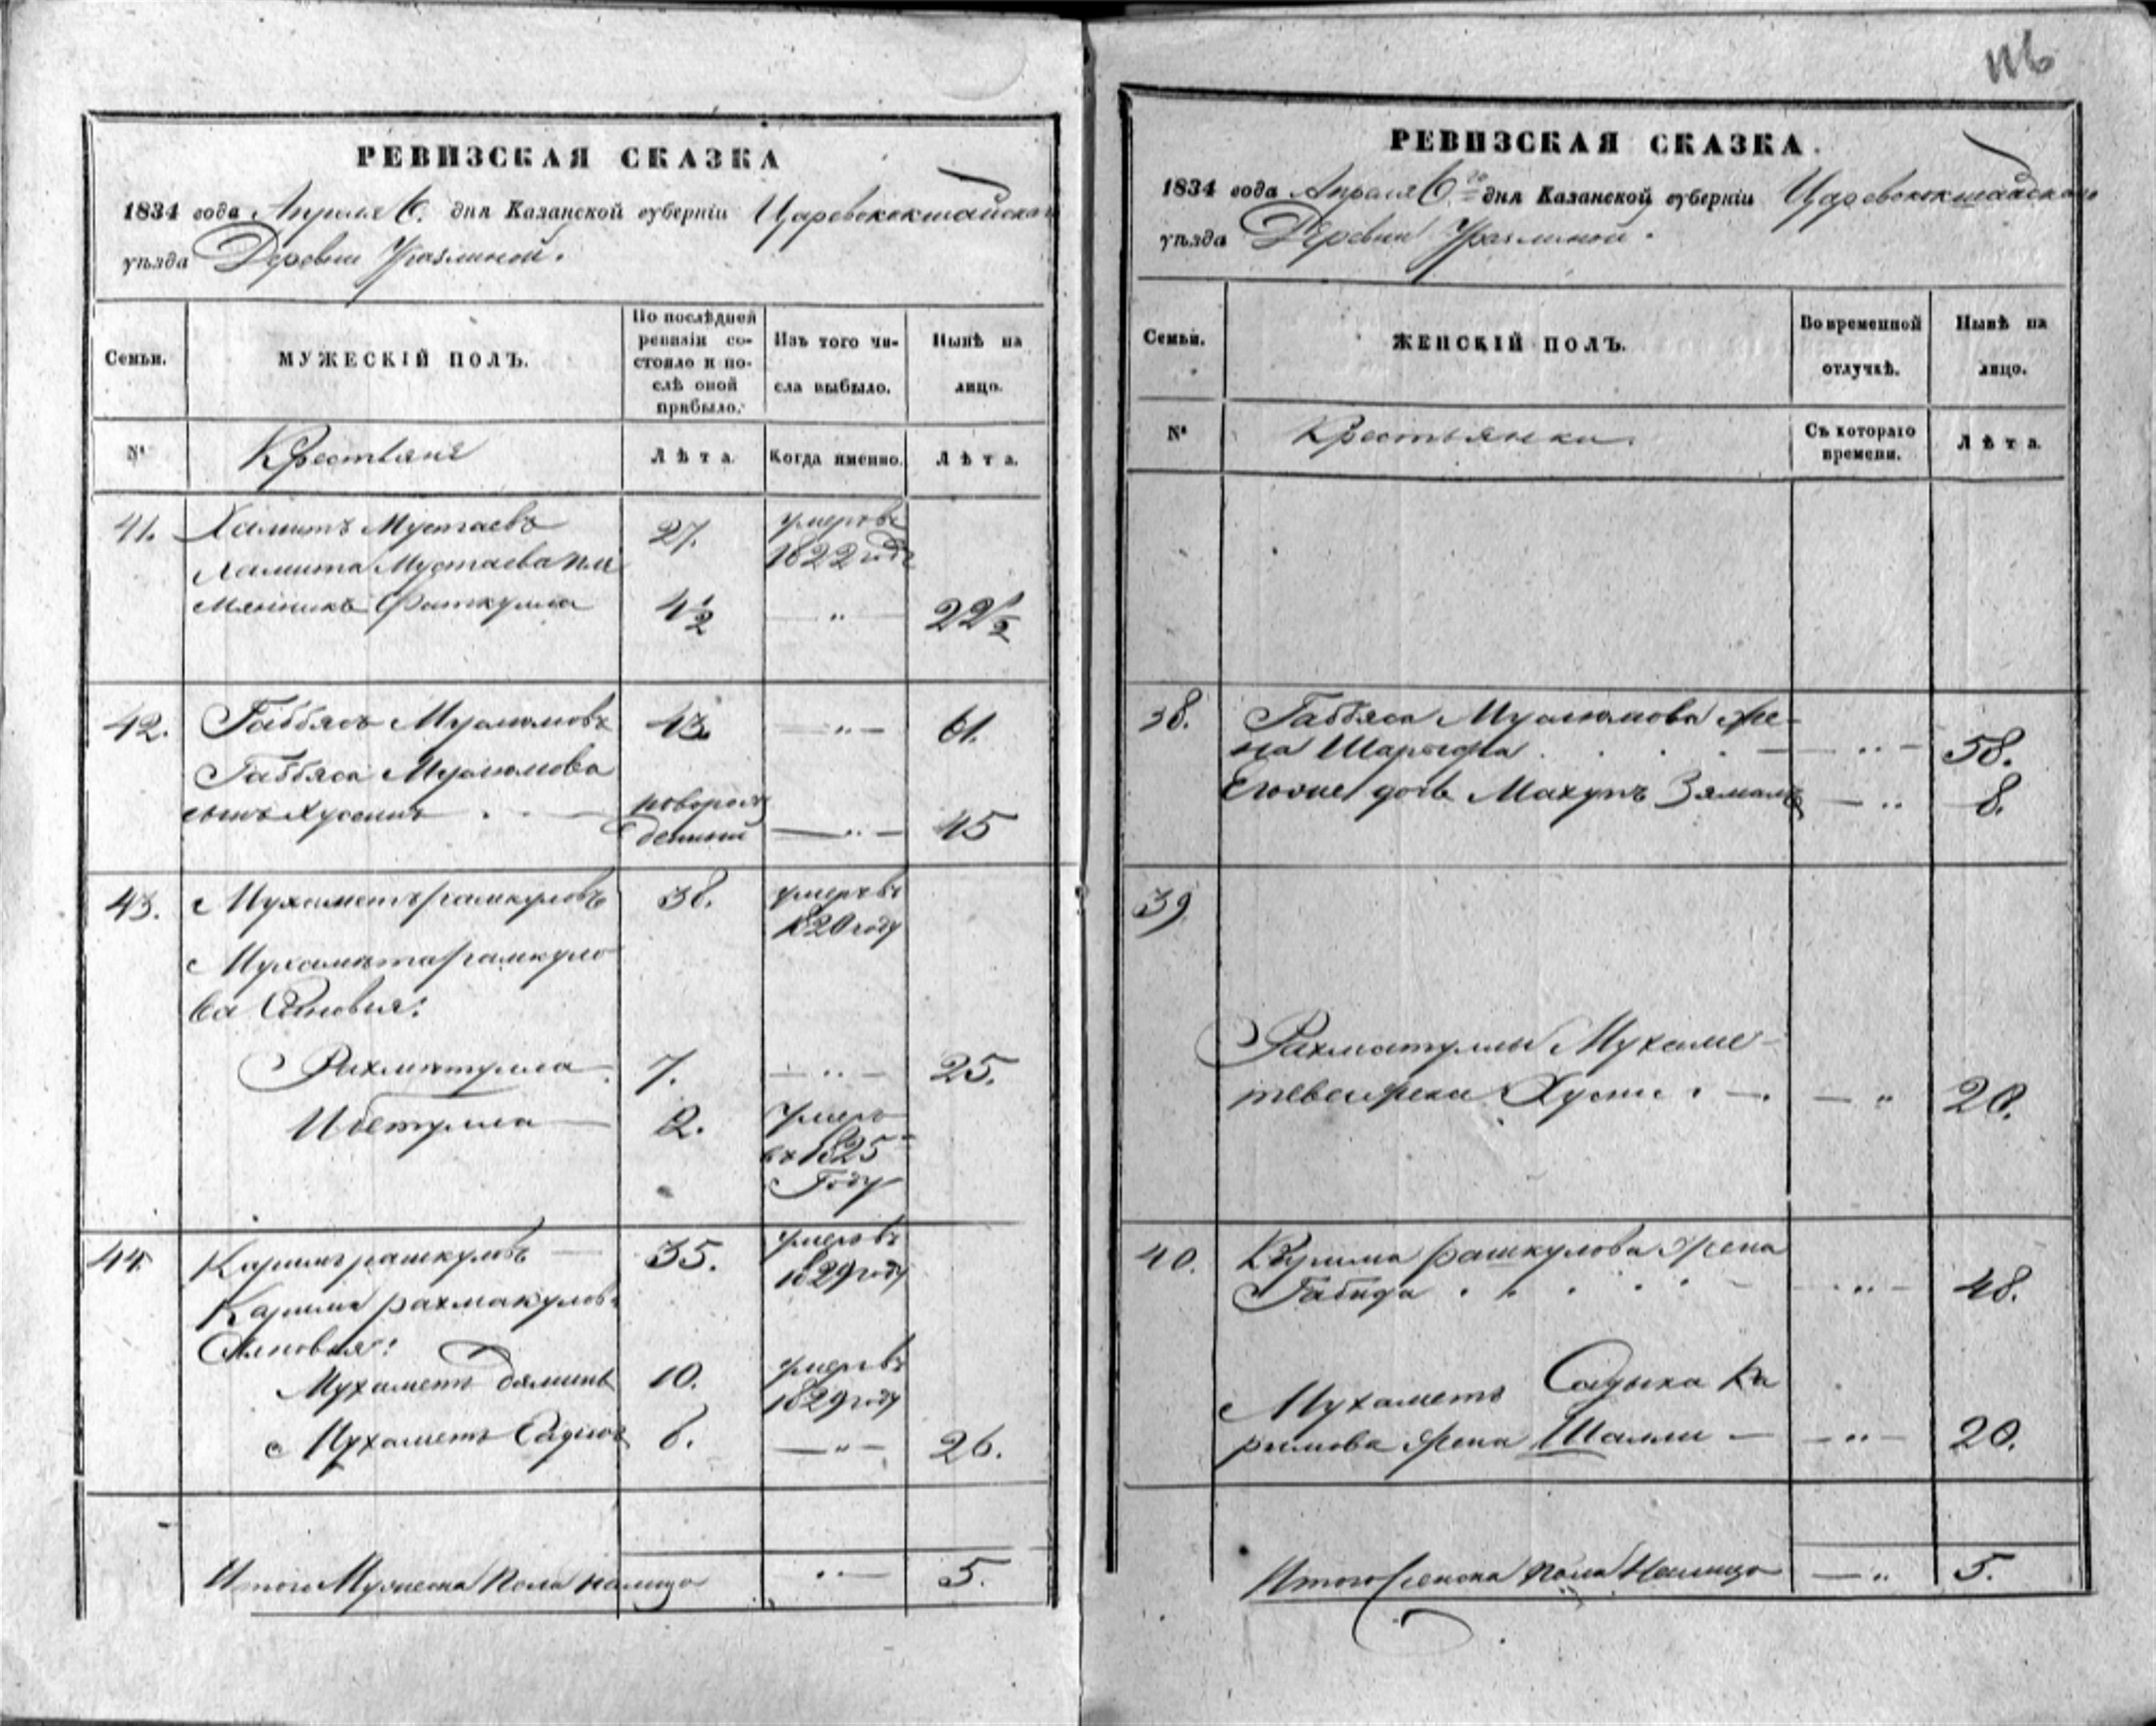 116
РЕВИЗСКАЯ СКАЗКА
1834 года Апреля 6. дня Казанской губерніи Царевококшайскаго
уѣзда Деревни Уразлиной.
Семьи.
МУЖЕСКІЙ ПОЛЪ.
По послѣдней
ревизіи со-
стояло и по-
слѣ оной
прибыло.
Изъ того чи-
сла выбыло.
Нынѣ на
лицо.
№
Крестьяне
Лѣта.
Когда именно.
Лѣта.
41. Хамитъ Мустаевъ 27. умеръ въ
1822 годе
Хамита Мустаева пле
мянникъ Фаткулла 4½ — " — 22½
42. Габбясъ Муслюмовъ 43. — " — 61.
Габбяса Муслюмова
сынъ Хусеинъ новорож
денный — " — 15
43. Мухаметъ рамкуловъ 38. умеръ въ
1820 году
Мухамета рамкуло
ва Сыновья:
Рахматулла 7. — " — 25.
Ибетулла 2. Умеръ
въ 1825
Году
44. Каримъ рамкуловъ 35. умеръ въ
1829 году
Карима рахманкулова
Сыновья:
Мухаметъ Зяминъ 10. умеръ въ
1829 году
Мухаметъ Садыкъ 8. — " — 26.
Итого Мужеска пола налицо — " — 5.
РЕВИЗСКАЯ СКАЗКА.
1834 года Апреля 6го дня Казанской губерніи Царевококшайскаго
уѣзда Деревни Уразлиной.
Семьи.
ЖЕНСКІЙ ПОЛЪ.
Во временной
отлучкѣ.
Нынѣ на
лицо.
№
Крестьянки.
Съ котораго
времени.
Лѣта.
38. Габбяса Муслюмова же-
на Шарифа — " — 58.
Егоже дочь Махупъ Зямалъ — " — 8.
39.
Рахматуллы Мухаме-
тева жена — " 20.
40. Карима рамкулова жена
Габида — " — 48.
Мухаметъ Садыка Ка
римова жена Шамси — " — 20.
Итого Женска пола Налицо — " 5.